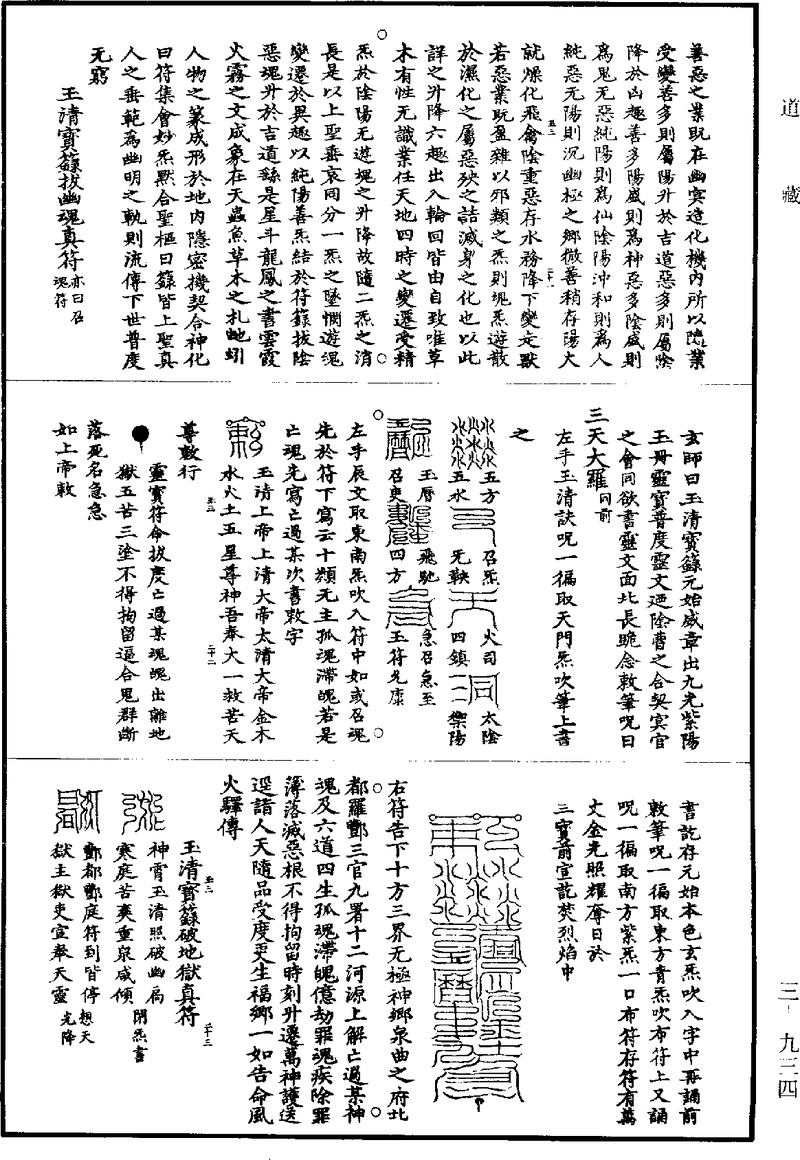 道藏
三·九三四
善惡之業既在幽冥造化機內所以隨業
受變善多則屬陽升於吉道惡多則屬陰
降於凶趣善多陽盛則為神惡多陰盛則
為鬼无惡純陽則為仙陰陽沖和則為人
純惡无陽則沉幽極之鄉微善稍存陽大
就燥化飛禽陰重惡存水務降下變走獸
若惡業既盈雜以邪類之炁則塊炁遊散
於濕化之屬惡殃之詰滅身之化也以此
詳之升降六趣出入輪回皆由自致唯草
木有性无識業任天地四時之變遷受精
炁於陰陽无遊塊之升降故隨二炁之消
長是以上聖垂哀同分一炁之墜憫遊魂
變遷於異趣以純陽善炁結於符籙拔陰
惡魂升於吉道繇是星斗龍鳳之書雲霞
火霧之文成象在天蟲魚草木之札虵蚓
人物之篆成形於地內隱密機契合神化
曰符集會妙炁默合聖樞曰籙皆上聖真
人之垂範為幽明之軌則流傳下世普度
无窮
玉清寶籙拔幽魂真符亦曰召魂符
玄師曰玉清寶籙元始威章出九光紫陽
玉冊靈寶普度靈文迺陰曹之合契冥官
之會同欲書靈文面北長跪念敕筆呪曰
三天大羅同前
左手玉清訣呪一徧取天門炁吹筆上書
之
五方 召炁 火司 太陰
五水 无鞅 四鎮 一一 樂陽
玉曆 飛馳 急召急至
召吏 四方 玉符先康
左手辰文取東南炁吹入符中如或召魂
先於符下寫云十類无主孤魂滯魄若是
亡魂先寫亡過某次書敕字
玉清上帝上清大帝太清大帝金木
水火土五星尊神吾奉太一救苦天
尊敕行
靈寶符命拔度亡過某魂魄出離地
獄五苦三塗不得拘留逼合鬼群斷
落死名急急
如上帝敕
書訖存元始本色玄炁吹入字中再誦前
敕筆呪一徧取東方青炁吹布符上又誦
呪一徧取南方紫炁一口布符存符有萬
丈金光照耀奪日於
三寶前宣訖焚烈焰中
右符告下十方三界无極神鄉泉曲之府北
都羅酆三官九署十二河源上解亡過某神
魂及六道四生孤魂滯魄億劫罪魂疾除罪
簿落滅惡根不得拘留時刻升遷萬神護送
逕詣人天隨品受度更生福鄉一如告命風
火驛傳
玉清寶籙破地獄真符
神霄玉清照破幽扃閉炁書
寒庭苦爽重泉咸傾
酆都酆庭符到皆停想天
獄主獄吏宣奉天靈光降